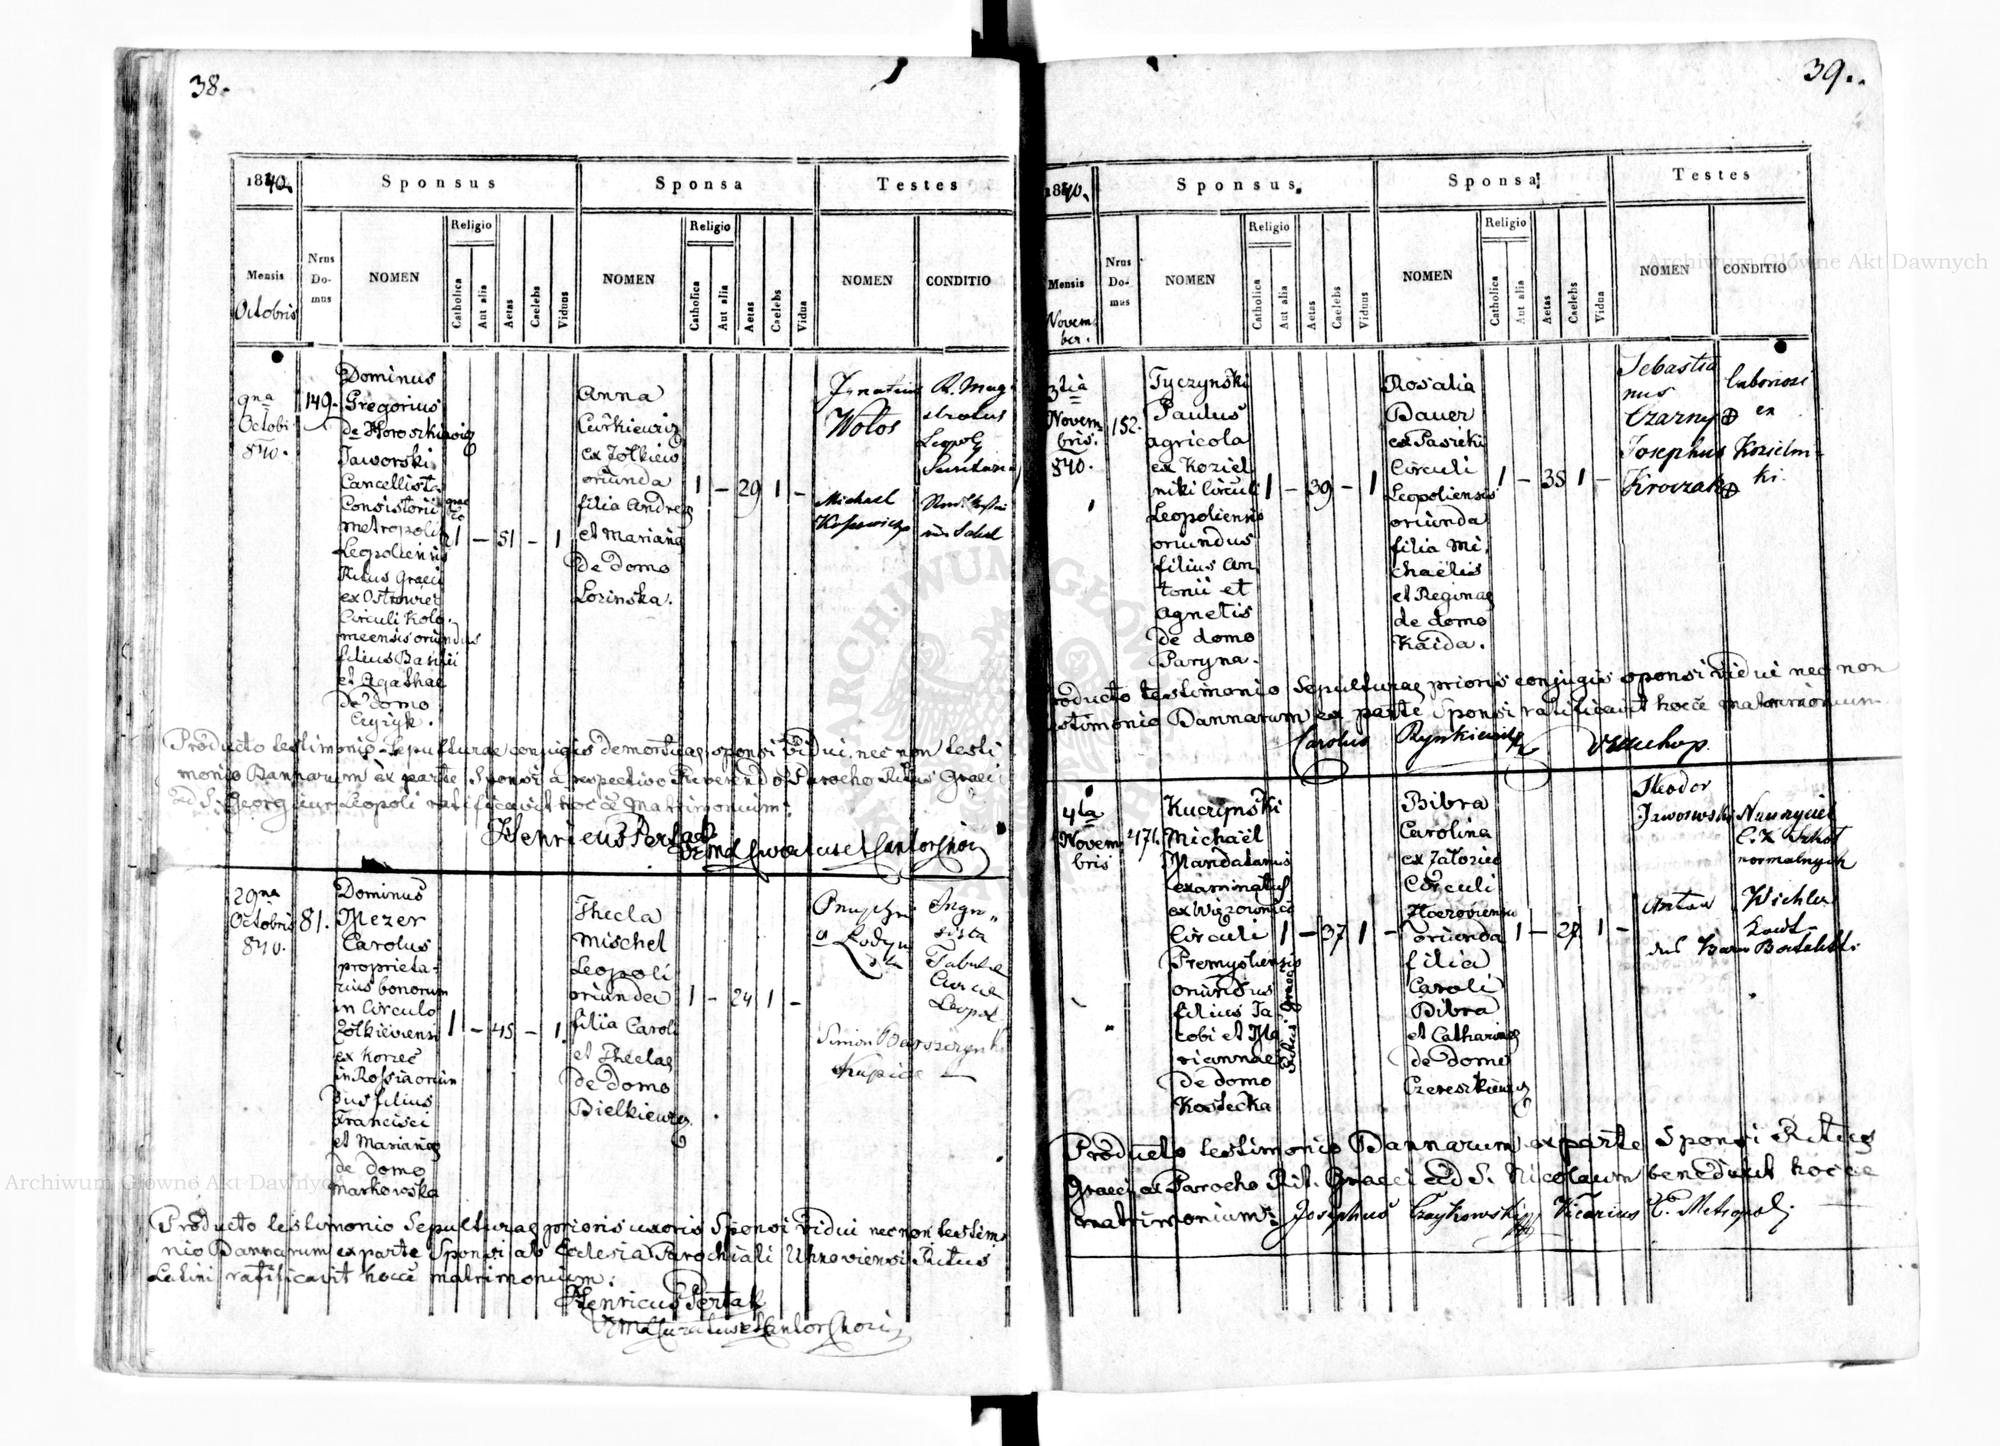 38.
1840.
Sponsus
Sponsa
Testes
Mensis
Octobris
Nrus
Do-
mus
NOMEN
Religio
Catholica
Aut alia
Aetas
Caelebs
Viduus
NOMEN
Religio
Catholica
Aut alia
Aetas
Caelebs
Vidua
NOMEN
CONDITIO
9na
Octobr
840.
149.
Dominus
Gregorius
de Horoszkiewicz
Jaworski
Cancellista
Consistorii
metropolit
Leopoliensis
Ritus Graeci
ex Ostrowiec
Circuli Kolo-
meensis oriundus
filius Basilii
et Agathae
de domo
Cyzyk.
1 — 51 — 1
Anna
Curkiewicz
ex Zolkiew
oriunda
filia Andreae
et Marianae
de domo
Lozinska.
1 — 29 1 —
Ignatius
Wolos
Michael
Leopol
Producto testimonio Sepulturae conjugis demortuae sponsi vidui nec non testi
monio Bannarum ex parte Sponsi a respectivo Reverendo Parocho Ritus Graeci
ad S. Georgium Leopoli ratificavit hocce matrimonium:
Henricus Pertak
20na
Octobris
840.
81.
Dominus
Mezer
Carolus
proprieta-
rius bonorum
in Circulo
Zolkieviensi
ex Korzec
in Rossia oriun
dus filius
Francisci
et Marianae
de domo
Markowska
1 — 45 — 1
Thecla
Mischel
Leopoli
oriunda
filia Caroli
et Theclae
de domo
Bielkiewicz
1 — 24 1 —
Simon
Tabulae
Leopol
Producto testimonio Sepulturae prioris uxoris Sponsi vidui nec non testim
nio Bannarum ex parte Sponsi ab Ecclesia Parochiali Uhnoviensi Ritus
Latini ratificavit hocce matrimonium:
Henricus Pertak
39.
1840.
Sponsus
Sponsa
Testes
Mensis
Novem
ber.
Nrus
Do-
mus
NOMEN
Religio
Catholica
Aut alia
Aetas
Caelebs
Viduus
NOMEN
Religio
Catholica
Aut alia
Aetas
Caelebs
Vidua
NOMEN
CONDITIO
3tia
Novem
bris.
840.
152.
Tyczynski
Paulus
agricola
ex Koziel
niki Circuli
Leopoliensis
oriundus
filius An
tonii et
Agnetis
de domo
Paryna.
1 — 39 — 1
Rosalia
Bauer
ex Pasieki
Circuli
Leopoliensis
oriunda
filia Mi
chaelis
et Reginae
de domo
Kaida.
1 — 35 1 —
Sebastia
nus
Czarny
Josephus
Krovzak
laboriosi
ex
Kozielni
ki.
Producto testimonio Sepulturae prioris conjugis sponsi vidui nec non
testimonio Bannarum ex parte Sponsi ratificavit hocce matrimonium
Carolus Rynkiewicz
4ta
Novem
bris
471.
Kuczynski
Michaël
Mandatarius
examinatus
ex Wiązownica
Circuli
Premysliensis
oriundus
filius Ja
cobi et Ma
riannae
de domo
Kostecka
Ritus Graeci
1 — 37 1 —
Bibra
Carolina
ex Zatoziec
Circuli
Zloczoviensis
oriunda
filia
Caroli
Bibra
et Catharinae
de domo
Czereszkiewicz
1 — 27 1 —
Theodor
Jaworski
Nauczyciel
C. K. Szkół
normalnych
Antau
Producto testimonio Bannarum ex parte Sponsi Ritus
Graeci a Parocho Rit. Graeci ad S. Nicolaum benedixit hocce
matrimonium: Josephus Czaykowski Vicarius E. Metropol.
Archiwum Główne Akt Dawnych
Archiwum Główne Akt Dawnych